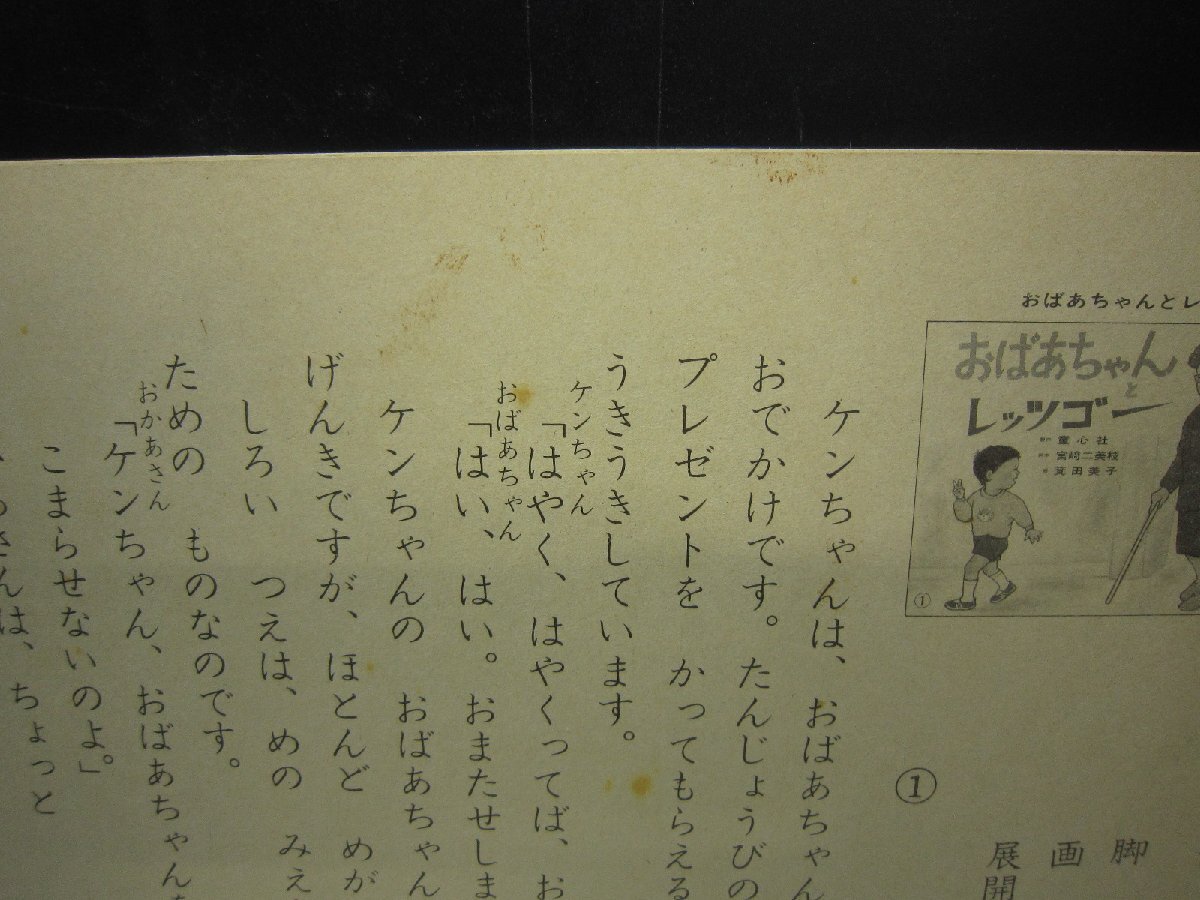 おばあちゃんとレ
おばあちゃん
と
レッツゴー
童心社
宮崎二美枝
箕田美子
①
脚
画
展開
①
ケンちゃんは、おばあちゃん
おでかけです。たんじょうびの
プレゼントを かってもらえる
うきうきしています。
ケンちゃん
「はやく、はやくってば、お
おばあちゃん
「はい、はい。おまたせしま
ケンちゃんの おばあちゃん
げんきですが、ほとんど めが
しろい つえは、めの みえ
ための ものなのです。
おかあさん
「ケンちゃん、おばあちゃん
こまらせないのよ。」
さんは、ちょっと